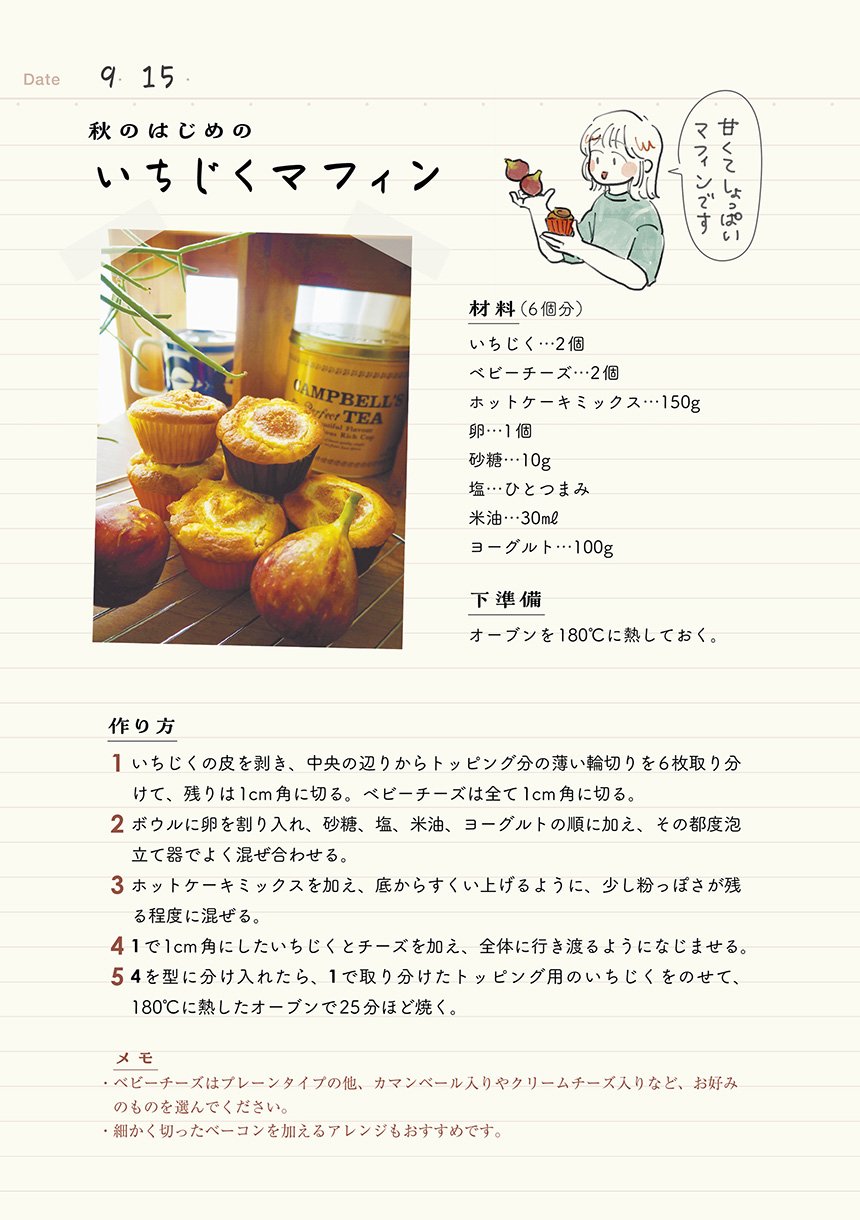 Date 9. 15.
秋のはじめの
いちじくマフィン
甘くてしょっぱい
マフィンです
CAMPBELL'S
Perfect TEA
材料(6個分)
いちじく…2個
ベビーチーズ…2個
ホットケーキミックス…150g
卵…1個
砂糖…10g
塩…ひとつまみ
米油…30㎖
ヨーグルト…100g
下準備
オーブンを180℃に熱しておく。
作り方
1 いちじくの皮を剥き、中央の辺りからトッピング分の薄い輪切りを6枚取り分
けて、残りは1cm角に切る。ベビーチーズは全て1cm角に切る。
2 ボウルに卵を割り入れ、砂糖、塩、米油、ヨーグルトの順に加え、その都度泡
立て器でよく混ぜ合わせる。
3 ホットケーキミックスを加え、底からすくい上げるように、少し粉っぽさが残
る程度に混ぜる。
4 1で1cm角にしたいちじくとチーズを加え、全体に行き渡るようになじませる。
5 4を型に分け入れたら、1で取り分けたトッピング用のいちじくをのせて、
180℃に熱したオーブンで25分ほど焼く。
メモ
・ベビーチーズはプレーンタイプの他、カマンベール入りやクリームチーズ入りなど、お好み
のものを選んでください。
・細かく切ったベーコンを加えるアレンジもおすすめです。